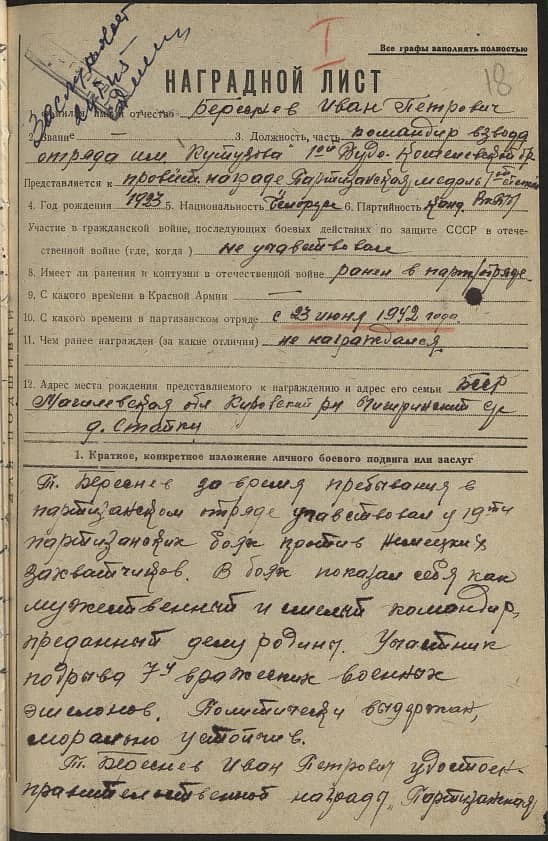 Заслуживает
I
Все графы заполнять полностью
18
НАГРАДНОЙ ЛИСТ
1. Фамилия, имя и отчество Береснев Иван Петрович
2. Звание — 3. Должность, часть командир взвода
отряда им. Кутузова 1ой Будо-Кошелевской бр.
Представляется к правит. награде Партизанская медаль 1ой степени
4. Год рождения 1923 5. Национальность белорус 6. Партийность Канд. ВКП(б)
Участие в гражданской войне, последующих боевых действиях по защите СССР в отече-
ственной войне (где, когда) не учавствовал
8. Имеет ли ранения и контузии в отечественной войне ранен в парт/отряде
9. С какого времени в Красной Армии —
10. С какого времени в партизанском отряде с 23 июня 1942 года.
11. Чем ранее награжден (за какие отличия) не награждался
12. Адрес места рождения представляемого к награждению и адрес его семьи БССР
Магилевская обл р-н
д. Стайки
1. Краткое, конкретное изложение личного боевого подвига или заслуг
Т. Береснев за время пребывания в
партизанском отряде учавствовал у 19ти
партизанских боях против немецких
захватчиков. В боях показал себя как
мужественный и смелый командир,
преданный делу родины. Участник
подрыва 7и вражеских военных
эшелонов. Политически выдержан,
морально устойчив.
Т. Береснев Иван Петрович удостоен
правительственной награды „Партизанская
ДЛЯ ПОДШИВКИ